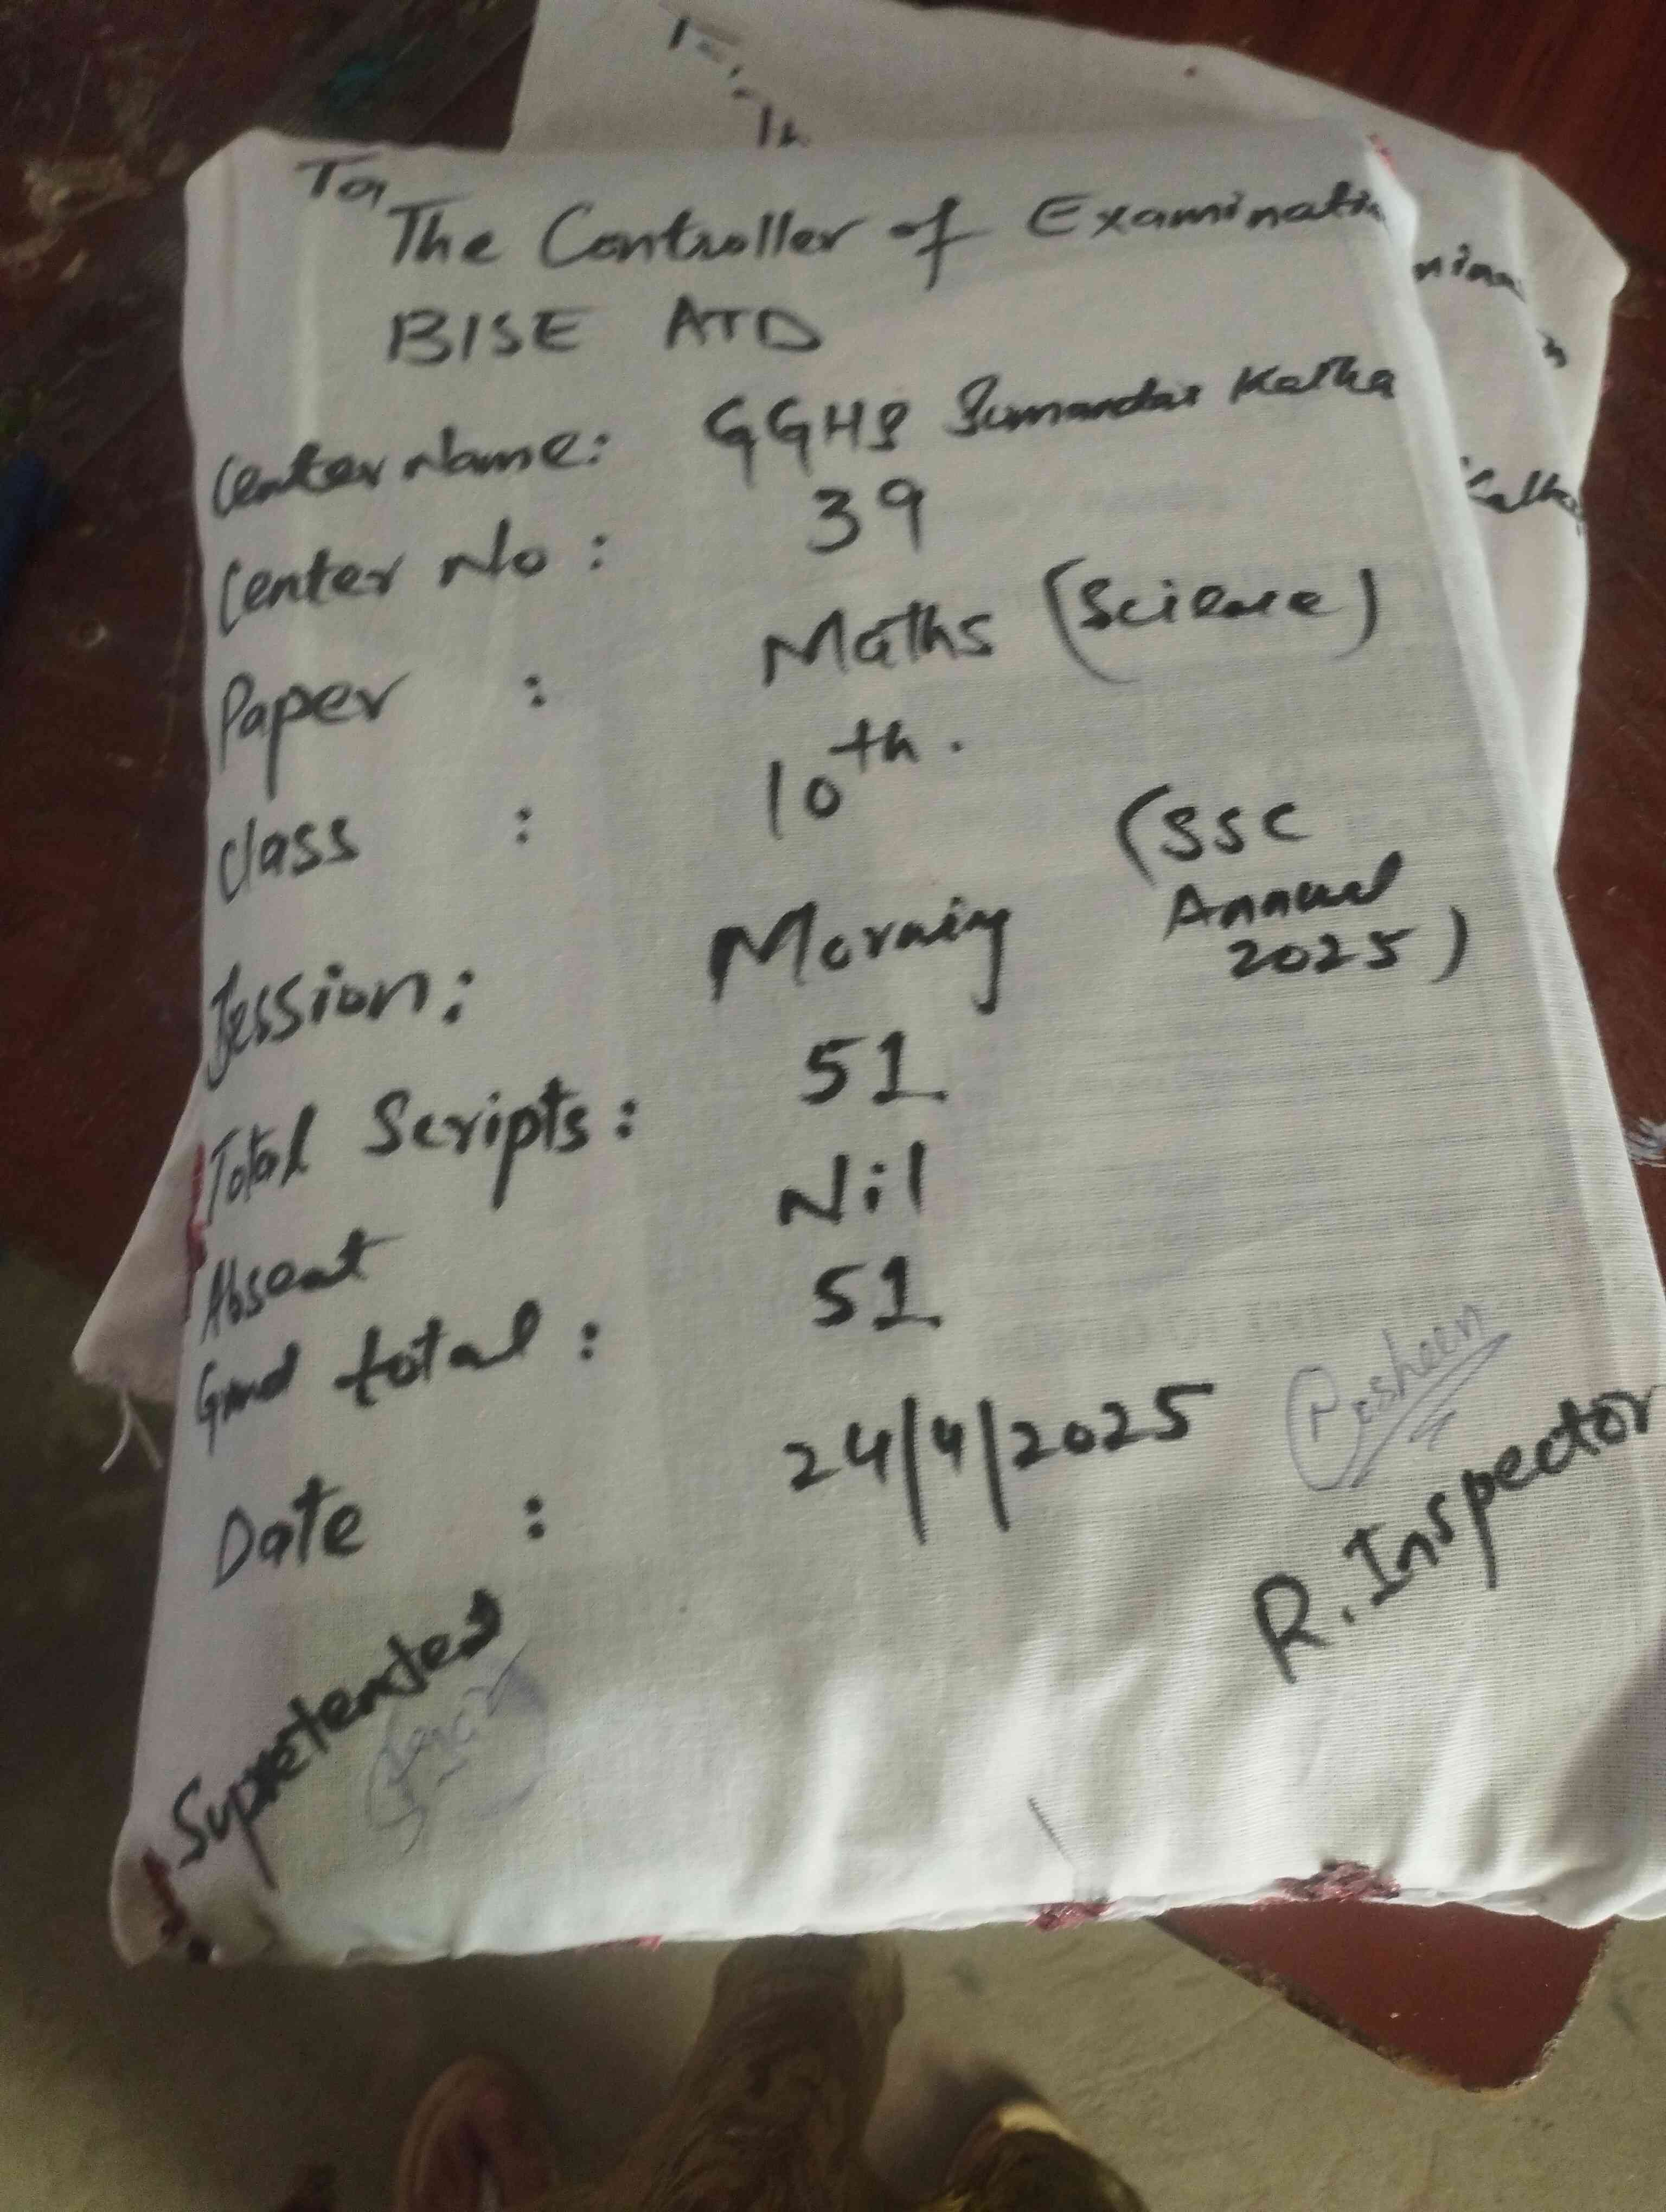 To,
The Controller of Examinatio
BISE ATD
Center Name: GGHS Sumandar Katha
Center No : 39
Paper : Maths (Science)
Class : 10th.
Session: Morning (SSC
Annual
2025)
Total Scripts: 51
Absent Nil
Grand total : 51
Date : 24/4/2025
Posheen
R. Inspector
Supretented